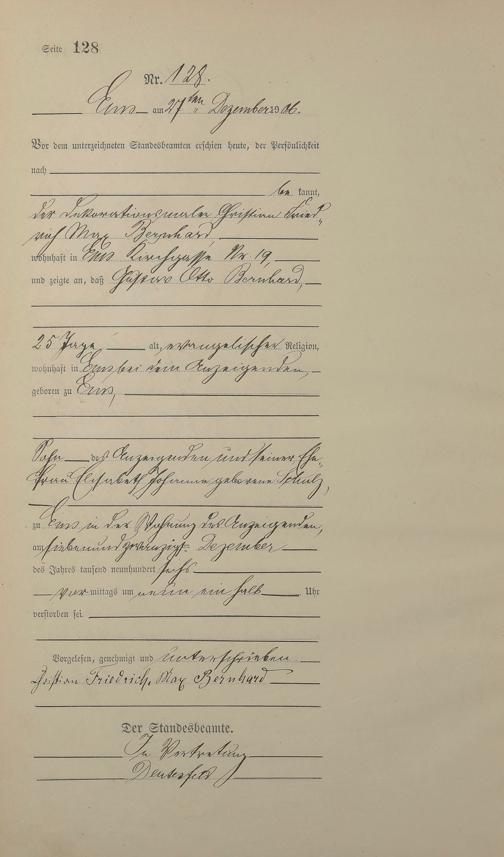 Seite 128
Nr. 128.
Ems am 27ten Dezember 1906.
Vor dem unterzeichneten Standesbeamten erschien heute, der Persönlichkeit
nach
be kannt,
der Dekorationsmaler Christian Fried-
rich Max Bernhard
wohnhaft in Ems Kirchgasse Nr. 19,
und zeigte an, daß Gustav Otto Bernhard,
25 Tage alt, evangelischer Religion,
wohnhaft in Ems bei dem Anzeigenden,
geboren zu Ems,
Sohn des Anzeigenden und seiner Ehe-
frau Elisabeth Johanna geborene Schulz,
zu Ems in der Wohnung des Anzeigenden,
am siebenundzwanzigten Dezember
des Jahres tausend neunhundert sechs
vor mittags um neun ein halb Uhr
verstorben sei.
Vorgelesen, genehmigt und unterschrieben
Christian Friedrich Max Bernhard
Der Standesbeamte.
In Vertretung